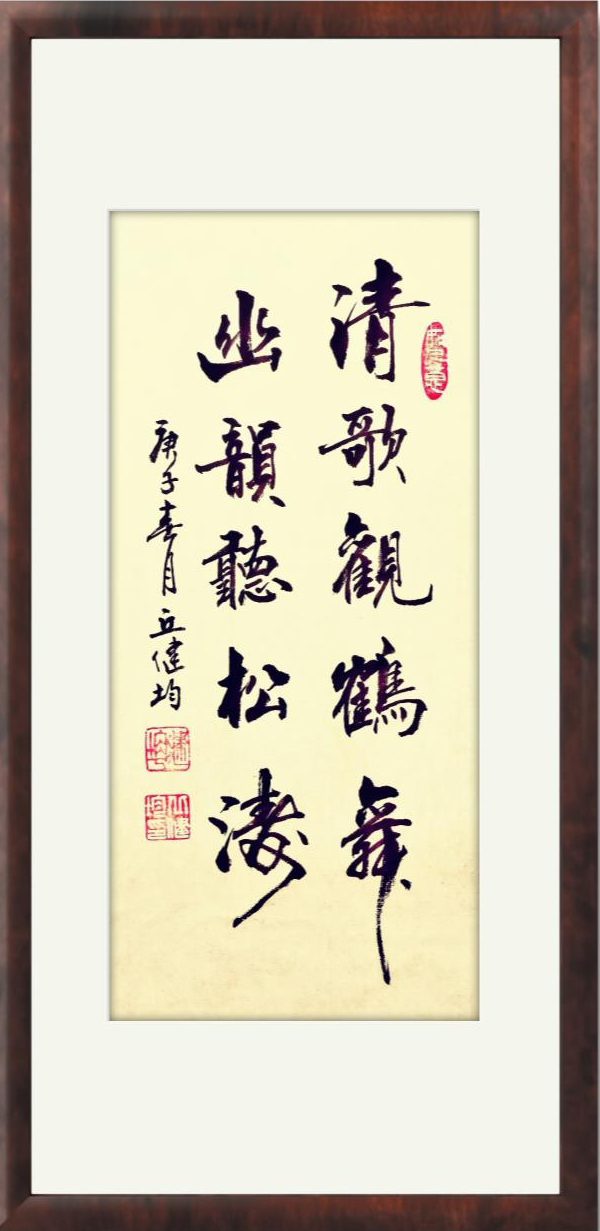 清歌觀鶴舞
幽韻聽松濤
庚子春月丘健均